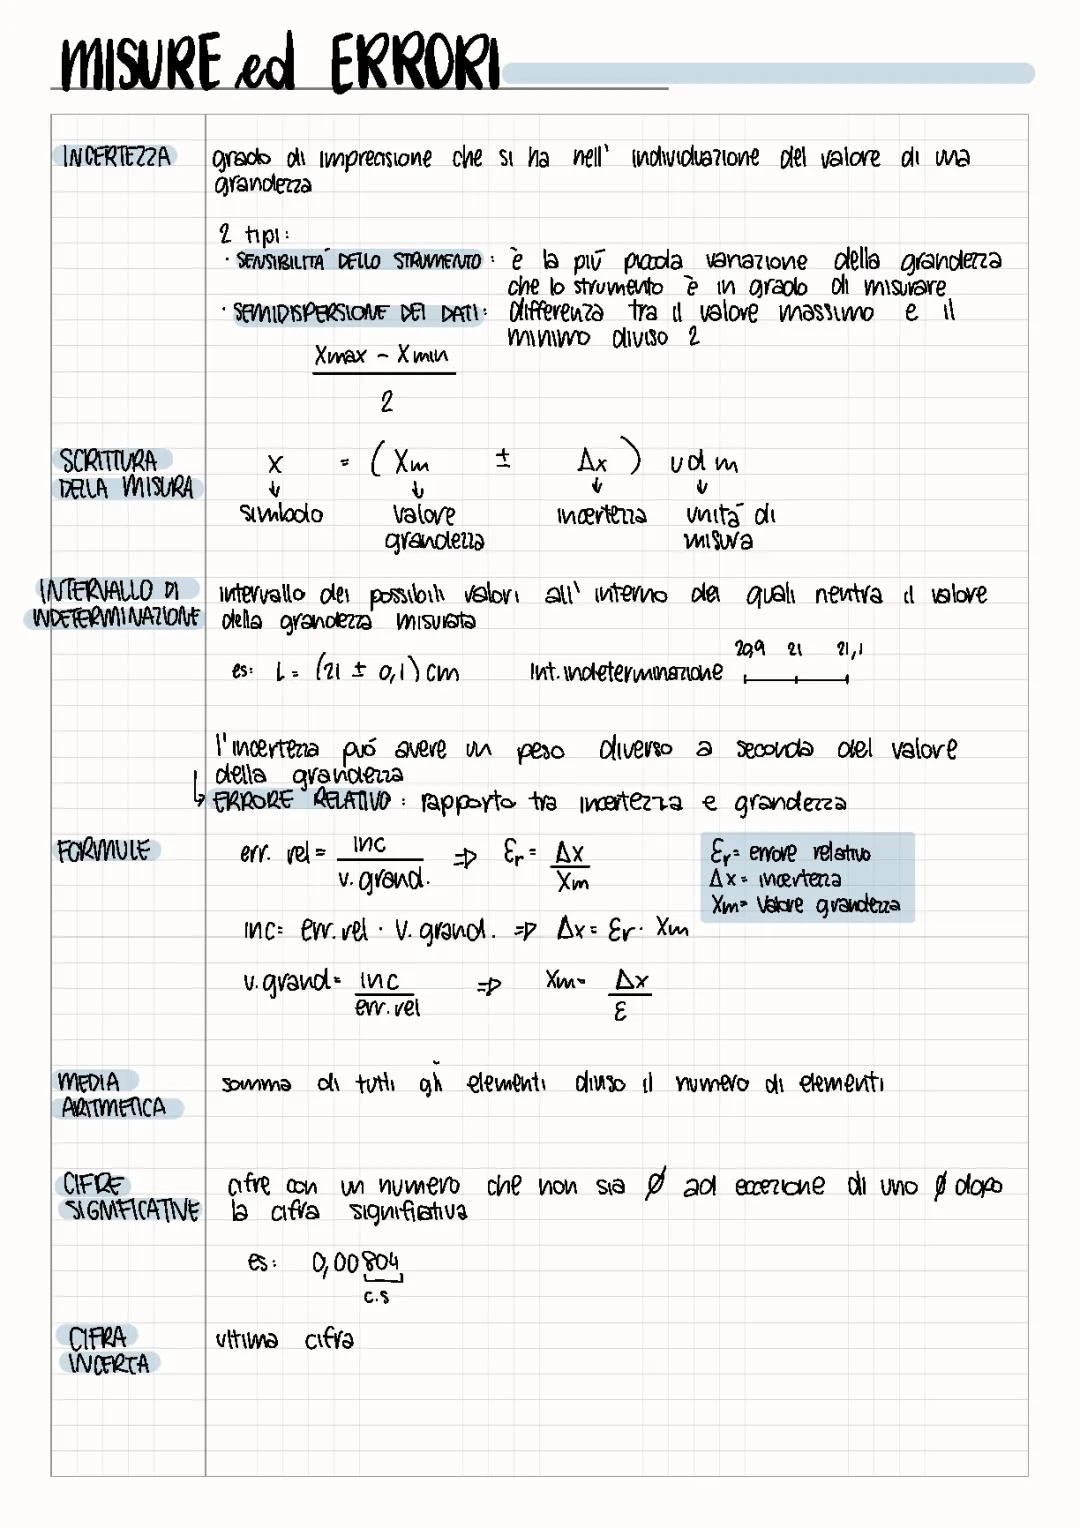 MISURE ed ERRORI
INCERTEZZA
grado di imprecisione che si ha nell' individuazione del valore di una
grandezza
2 tipi:
· SENSIBILITÀ DELLO STRUMENTO : è la più piccola variazione della grandezza
che lo strumento è in grado di misurare
· SEMIDISPERSIONE DEI DATI : differenza tra il valore massimo e il
minimo diviso 2
Xmax - Xmin
2
SCRITTURA
DELLA MISURA
X = ( Xm ± Δx ) udm
↓ ↓ ↓ ↓
simbolo valore incertezza unità di
grandezza misura
INTERVALLO DI
INDETERMINAZIONE
intervallo dei possibili valori all' interno dei quali rientra il valore
della grandezza misurata
20,9 21 21,1
es: L = (21 ± 0,1) cm Int. indeterminazione
l'incertezza può avere un peso diverso a seconda del valore
della grandezza
↳ ERRORE RELATIVO : rapporto tra incertezza e grandezza
FORMULE
err. rel = inc / v. grand. ⇒ Ɛr = Δx / Xm
Ɛr = errore relativo
Δx = incertezza
Xm = Valore grandezza
inc = err. rel · V. grand. ⇒ Δx = Ɛr · Xm
v. grand = inc / err. rel ⇒ Xm = Δx / Ɛ
MEDIA
ARITMETICA
somma di tutti gli elementi diviso il numero di elementi
CIFRE
SIGNIFICATIVE
cifre con un numero che non sia Ø ad eccezione di uno Ø dopo
la cifra significativa
es: 0,00804
c.s
CIFRA
INCERTA
ultima cifra